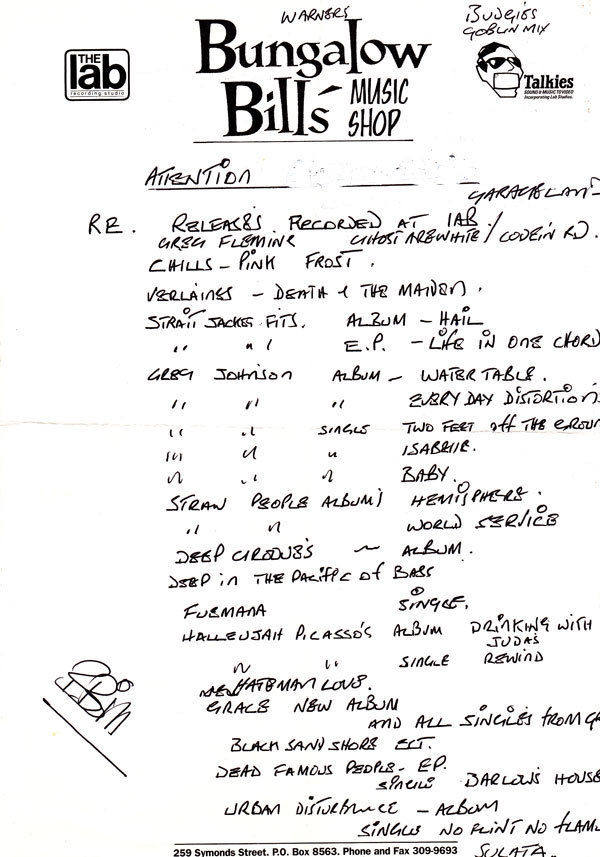 WARNERS
BUDGIES
GOBLIN MIX
THE
lab
recording studio
Bungalow
Bill's MUSIC
SHOP
Talkies
SOUND & MUSIC TO VIDEO
Incorporating Lab Studios.
ATTENTION
GARAGELAND
RE. RELEASES RECORDED AT LAB
GREG FLEMING GHOST ARE WHITE / CODEIN RD.
CHILLS - PINK FROST.
VERLAINES - DEATH & THE MAIDEN.
STRAIT JACKET FITS. ALBUM - HAIL
" " " E.P. - LIFE IN ONE CHORD
GREG JOHNSON ALBUM - WATERTABLE.
" " " EVERY DAY DISTORTION
" " SINGLE TWO FEET OFF THE GROUN
" " " ISABELLE.
" " " BABY.
STRAW PEOPLE ALBUM'S HEMISPHERE.
" " WORLD SERVICE
DEEP GROOVES ~ ALBUM.
DEEP IN THE PACIFIC OF BASS
FUEMANA SINGLE.
HALLEUJAH PICASSO'S ALBUM DRINKING WITH
JUDAS
" " SINGLE REWIND
HATEMAN LOVE.
GRACE NEW ALBUM
AND ALL SINGLES FROM
BLACK SAND SHORE ECT.
DEAD FAMOUS PEOPLE - EP.
SINGLE BARLOWS HOUSE
URBAN DISTURBANCE - ALBUM
SINGLE NO FLINT NO FLAM
SULATA.
259 Symonds Street. P.O. Box 8563. Phone and Fax 309-9693